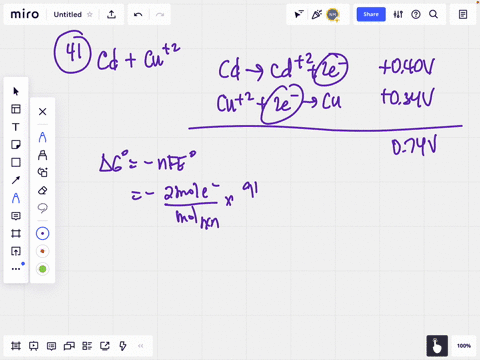 miro Untitled Share
41 Cd + Cu⁺²
Cd → Cd⁺² + 2e⁻ +0.40V
Cu⁺² + 2e⁻ → Cu +0.34V
0.74V
ΔG° = -nFE°
= - 2mol e⁻ / mol rxn × 91
100%